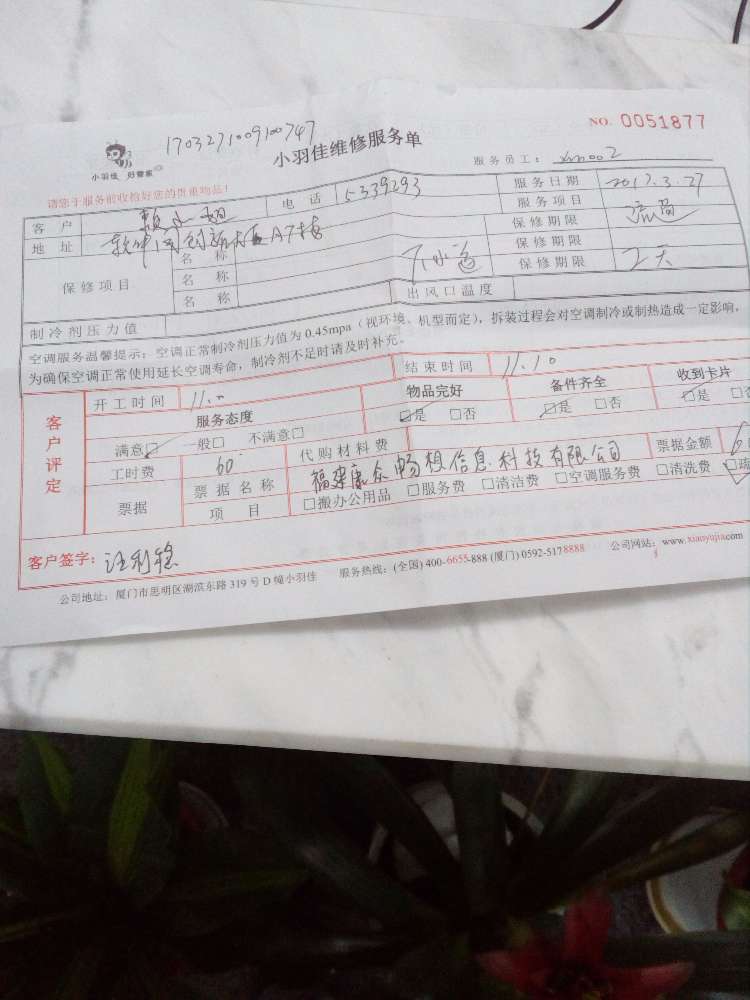 1703271009100747
NO. 0051877
小羽佳维修服务单
小羽佳 好管家
服务员工: xm002
请您于服务前收检好您的贵重物品!
客 户 电 话 5339293 服务日期 2017.3.27
地 址 软件园创新大厦A7楼 服务项目
保修项目
名 称 保修期限
名 称 保修期限
名 称 保修期限 2天
制冷剂压力值 出风口温度
空调服务温馨提示:空调正常制冷剂压力值为 0.45mpa(视环境、机型而定),拆装过程会对空调制冷或制热造成一定影响,
为确保空调正常使用延长空调寿命,制冷剂不足时请及时补充。
客户评定
开工时间 11.00 结束时间 11.10
服务态度 物品完好 备件齐全 收到卡片
满意□ 一般□ 不满意□ □是 □否 □是 □否 □是 □否
工时费 60 代购材料费
票据 票据名称 福建康众畅想信息科技有限公司 票据金额
项 目 □搬办公用品 □服务费 □清洁费 □空调服务费 □清洗费 □疏
客户签字: 汪利稳
公司地址:厦门市思明区湖滨东路 319 号 D 幢小羽佳 服务热线:(全国) 400-6655-888 (厦门) 0592-5178888 公司网站:www.xiaoyujia.com